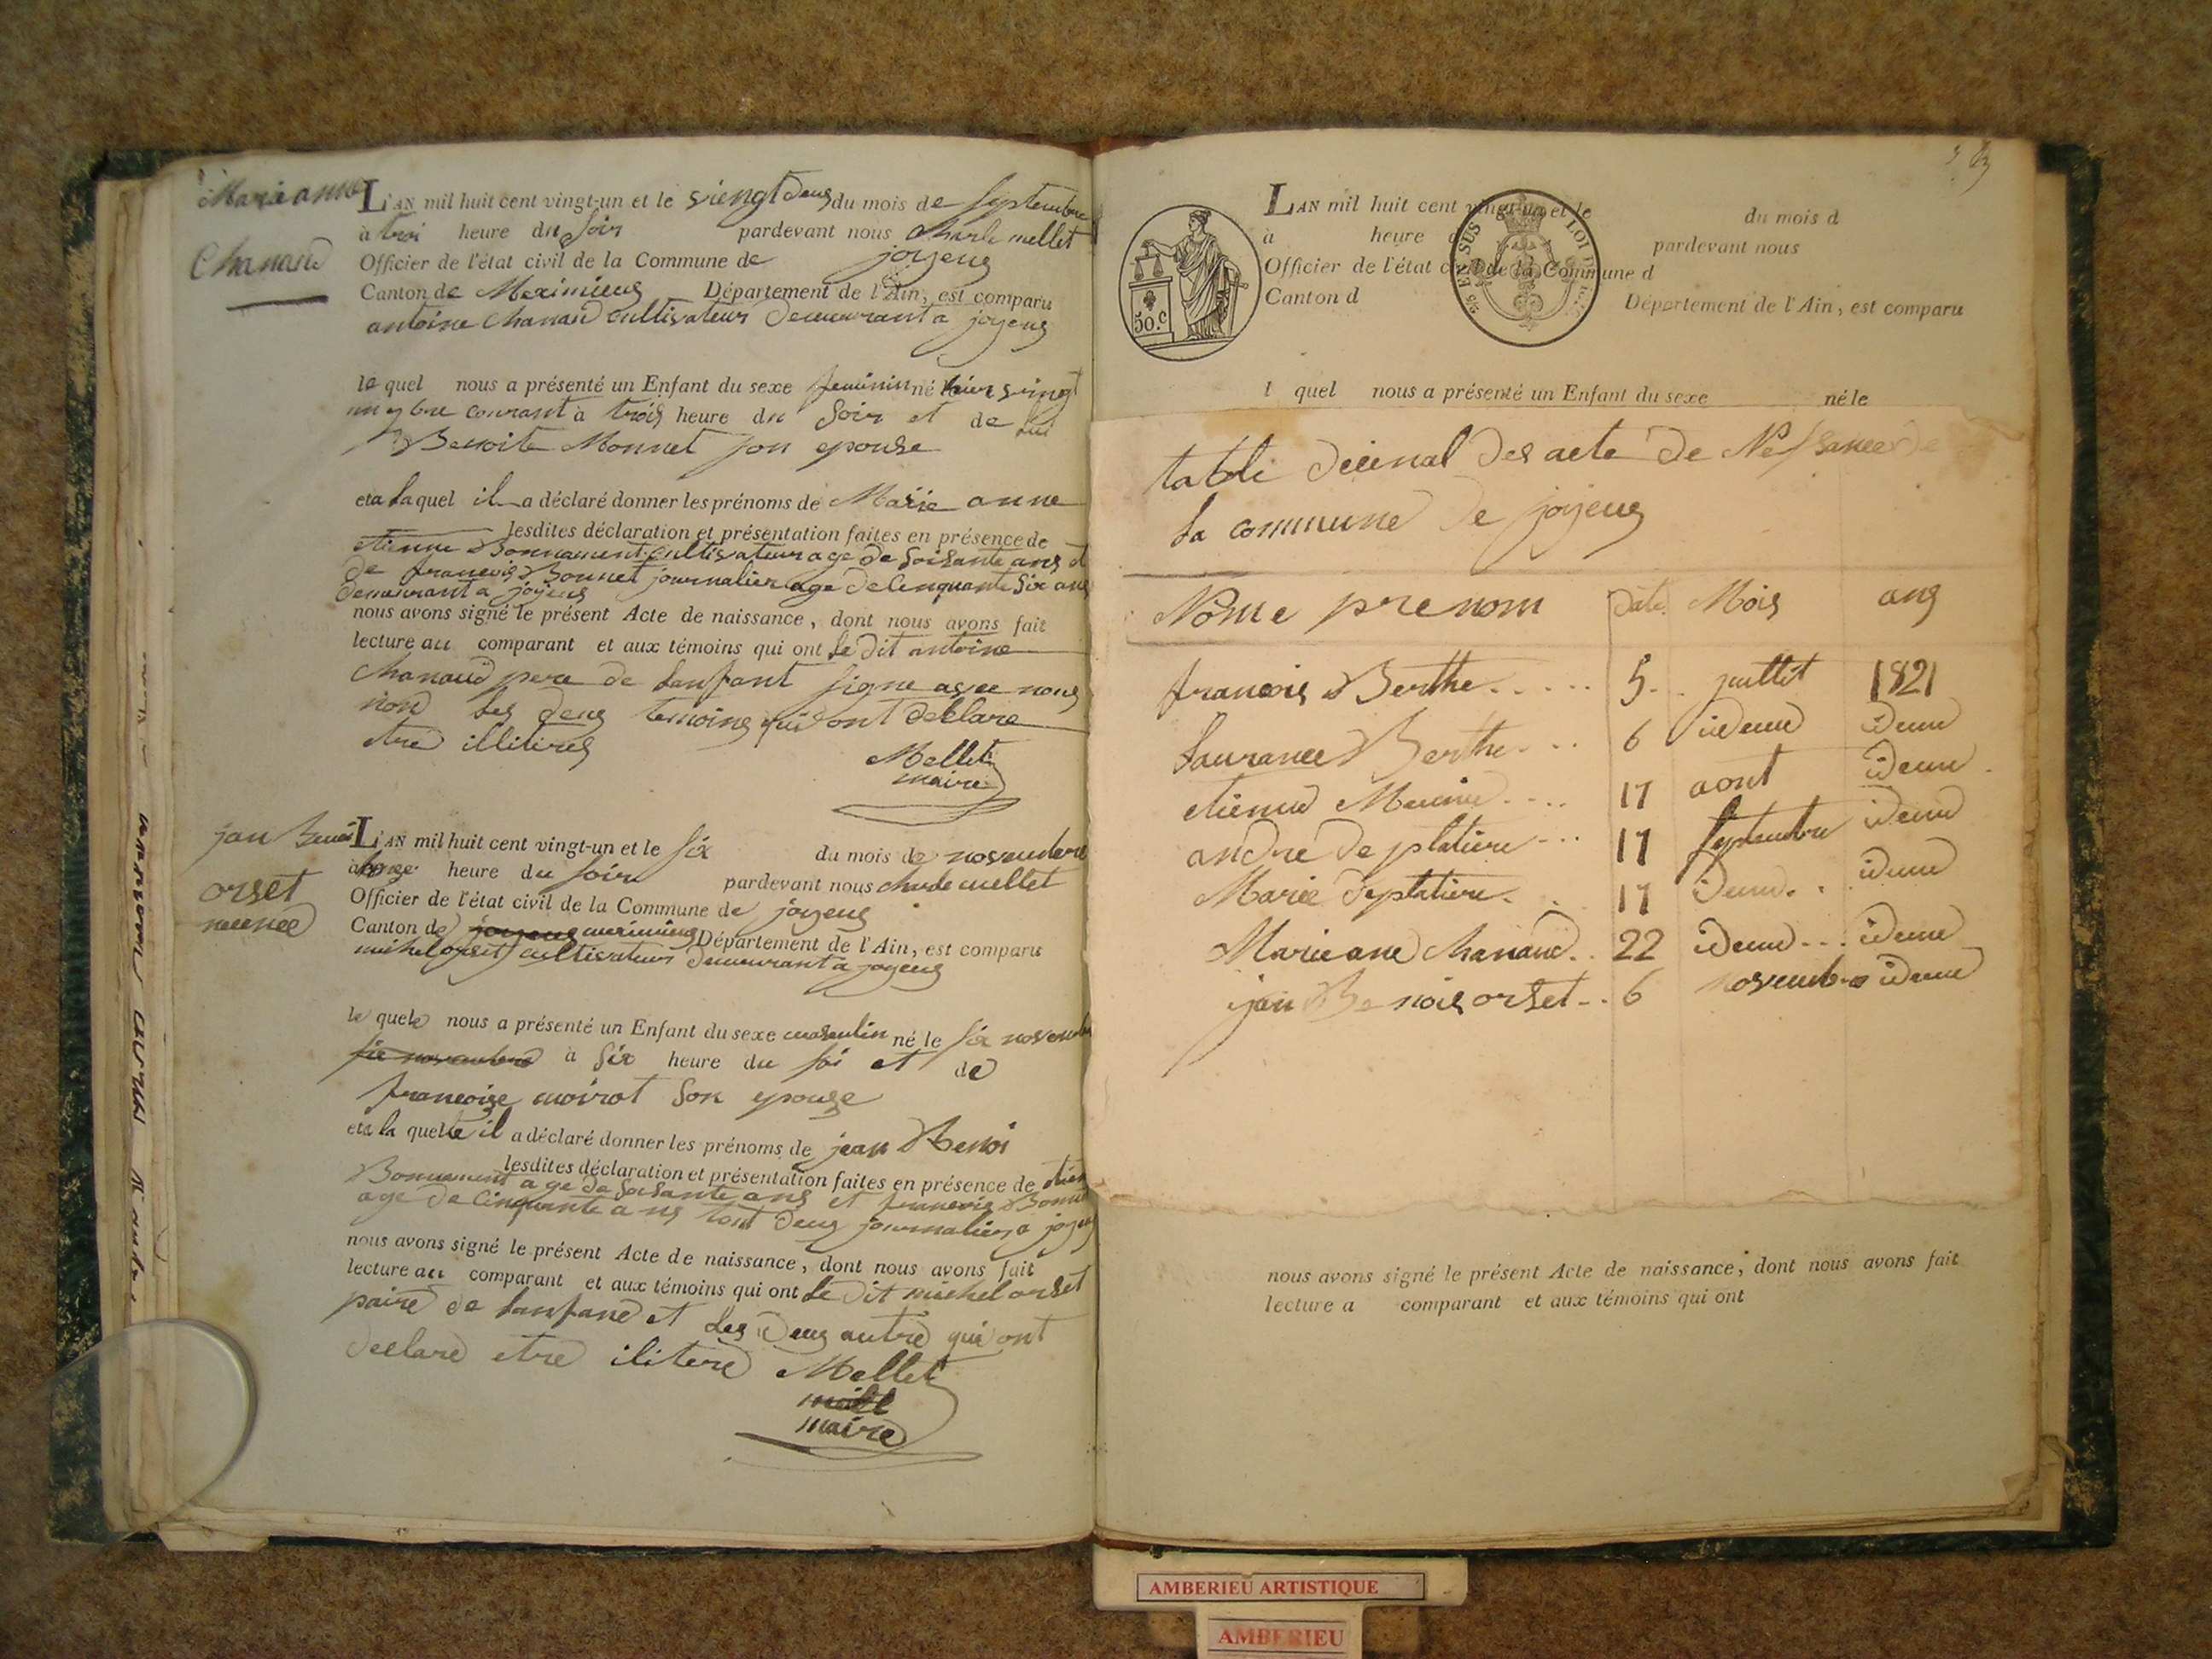 Marie anne
Chanaud
L'AN mil huit cent vingt-un et le viengt deus du mois de septembre
à troi heure du soir pardevant nous charle mellet
Officier de l'état civil de la Commune de joyeus
Canton de Meximieus Département de l'Ain, est comparu
antoine chanaud cultivateur demeurant a joyeus
le quel nous a présenté un Enfant du sexe feminin né hier vingt
un 7bre courant à trois heure du soir et de lui
Benoite Monnet son epouse
et a laquel il a déclaré donner les prénoms de Marie anne
lesdites déclaration et présentation faites en présence de
etienne Bonnament cultivateur age de soisante ans et
de francois Bonnet journalier age de cinquante six ans
demeurant a joyeus
nous avons signé le présent Acte de naissance, dont nous avons fait
lecture au comparant et aux témoins qui ont le dit antoine
chanaud pere de lanfant signe avec nous
non les deus temoins qui ont declare
etre illiteres
Mellet
maire
jan Benoi
orset
L'AN mil huit cent vingt-un et le six du mois de novembre
à heure du soir pardevant nous charle mellet
Officier de l'état civil de la Commune de joyeus
Canton de joyeus meximieus Département de l'Ain, est comparu
michel orset cultivateur demeurant a joyeus
le quele nous a présenté un Enfant du sexe masculin né le six novembre
six novembre à six heure du soi et de
francoise moirot son epouse
et a la quelle il a déclaré donner les prénoms de jean Benoi
lesdites déclaration et présentation faites en présence de etien
Bonnament age de soisante ans et francois Bonnet
age de cinquante ans tout deus journalier a joyeus
nous avons signé le présent Acte de naissance, dont nous avons fait
lecture au comparant et aux témoins qui ont le dit michel orset
paire de lanfand et les deus autre qui ont
declare etre ilitere Mellet
maire
LAN mil huit cent vingt-un et le du mois d
à heure d pardevant nous
Officier de l'état civil de la Commune d
Canton d Département de l'Ain, est comparu
50.c
EN SUS LOI DE
l quel nous a présenté un Enfant du sexe né le
table decinal des acte de Nessance de
la commune de joyeus
Nome prenom date Mois ans
francois Berthe 5 juillet 1821
laurance Berthe 6 ideme ideme
etienne 17 aout ideme
andre deplatiere 17 septembre ideme
Marie deplatiere 17 ideme ideme
Marie ane chanaud 22 ideme ideme
jan Benois orset 6 novembre ideme
nous avons signé le présent Acte de naissance, dont nous avons fait
lecture a comparant et aux témoins qui ont
AMBERIEU ARTISTIQUE
AMBERIEU